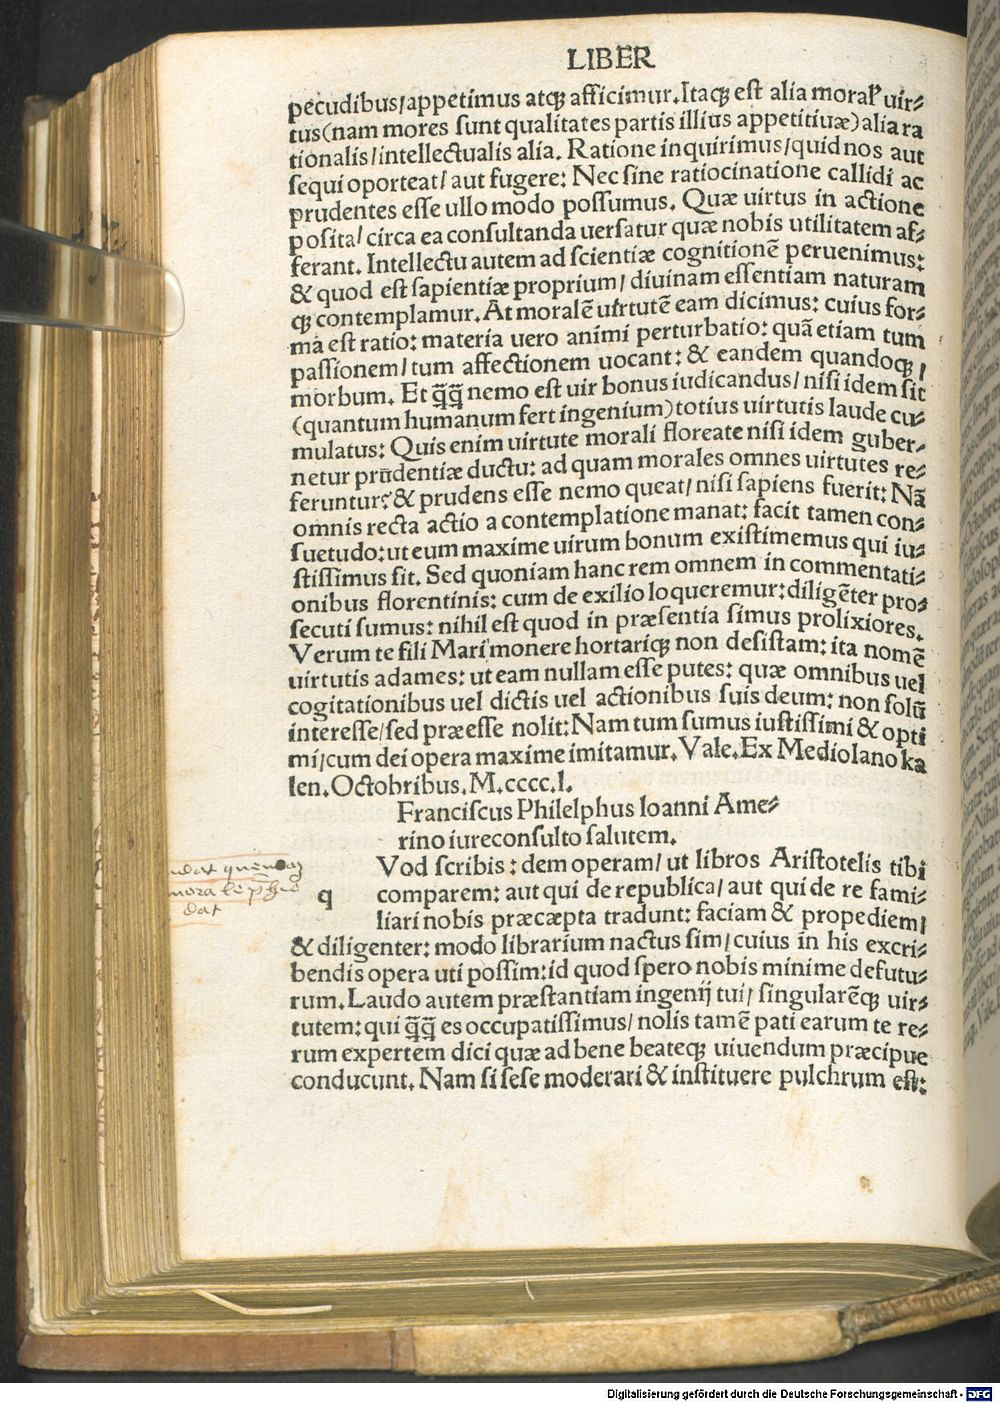 LIBER
pecudibus/appetimus atqꝫ afficimur. Itaqꝫ est alia moral᷒ uir⸗
tus(nam mores sunt qualitates partis illius appetitiuæ)alia ra
tionalis/intellectualis alia. Ratione inquirimus/quid nos aut
sequi oporteat/ aut fugere: Nec sine ratiocinatione callidi ac
prudentes esse ullo modo possumus. Quæ uirtus in actione
posita/ circa ea consultanda uersatur quæ nobis utilitatem af⸗
ferant. Intellectu autem ad scientiæ cognitionē peruenimus:
& quod est sapientiæ proprium/ diuinam essentiam naturam
qꝫ contemplamur. At moralē uirtutē eam dicimus: cuius for⸗
ma est ratio: materia uero animi perturbatio: quā etiam tum
passionem/ tum affectionem uocant: & eandem quandoqꝫ/
morbum. Et q̄q̄ nemo est uir bonus iudicandus/ nisi idem sit
(quantum humanum fert ingenium)totius uirtutis laude cu⸗
mulatus: Quis enim uirtute morali floreate nisi idem guber⸗
netur prūdentiæ ductu: ad quam morales omnes uirtutes re⸗
feruntur? & prudens esse nemo queat/ nisi sapiens fuerit: Nā
omnis recta actio a contemplatione manat: facit tamen con⸗
suetudo: ut eum maxime uirum bonum existimemus qui iu⸗
stissimus sit. Sed quoniam hanc rem omnem in commentati⸗
onibus florentinis: cum de exilio loqueremur: diligēter pro⸗
secuti sumus: nihil est quod in præsentia simus prolixiores.
Verum te fili Mari monere hortariqꝫ non desistam: ita nomē
uirtutis adames: ut eam nullam esse putes: quæ omnibus uel
cogitationibus uel dictis uel actionibus suis deum: non solū
interesse/sed præesse nolit: Nam tum sumus iustissimi & opti
mi/cum dei opera maxime imitamur. Vale. Ex Mediolano ka
len. Octobribus. M.cccc.l.
Franciscus Philelphus Ioanni Ame⸗
rino iureconsulto salutem.
Vod scribis: dem operam/ ut libros Aristotelis tibi
q comparem: aut qui de republica/ aut qui de re fami⸗
liari nobis præcæpta tradunt: faciam & propediem/
& diligenter: modo librarium nactus sim/ cuius in his excri⸗
bendis opera uti possim: id quod spero nobis minime defutu⸗
rum. Laudo autem præstantiam ingenij tui/ singularēqꝫ uir⸗
tutem: qui q̄q̄ es occupatissimus/ nolis tamē pati earum te re⸗
rum expertem dici quæ ad bene beateqꝫ uiuendum præcipue
conducunt. Nam si sese moderari & instituere pulchrum est:
dat
Digitalisierung gefördert durch die Deutsche Forschungsgemeinschaft - DFG